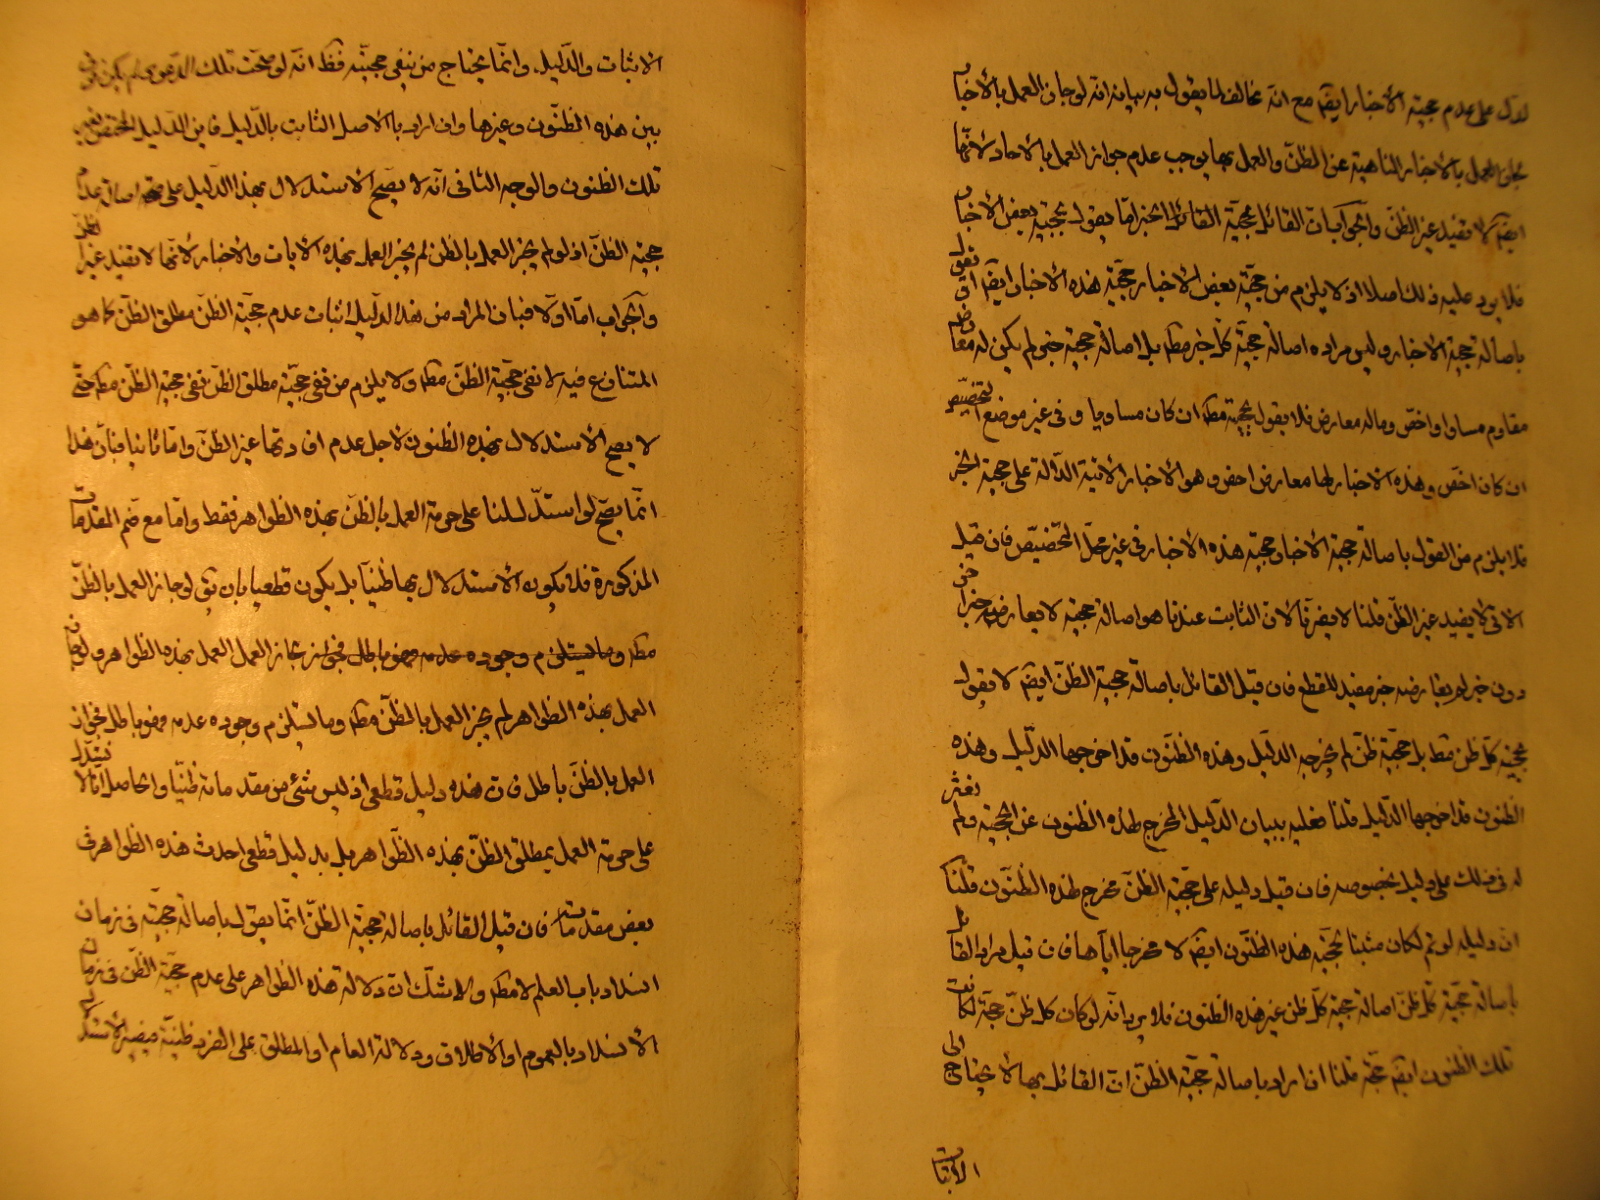 لدل على عدم حجية الأخبار ايضم مع انه مخالف لما يقول به بيانه انه لو جاز العمل بالأخبار
العمل بالاخبار الناهية عن الظنّ والعمل بها يوجب عدم جواز العمل بالاحاد لأنها
ايضم لا تفيد غير الظنّ والجواب ان القائل بحجية الخبر امّا يقول بحجية بعض الأخبار
فلا يرد عليه ذلك اصلا اذ لا يلزم من حجيّة بعض الأخبار حجيّة هذه الأخبار ايضم او نقول
باصالة حجية الاخبار وليس مراده اصالة حجيّة كلّ خبر مطم بل اصالة حجية خبر لم يكن له معارض
مقاوم مساو او اخصّ وماله معارض فلا يقول بحجية مطم ان كان مساويا وفى غير موضع التخصيص
ان كان اخصّ وهذه الاخبار لها معارض اخص وهو الأخبار الآتية الدّالة على حجية الخبر
فلا يلزم من القول باصالة حجية الأخبار حجية هذه الأخبار فى غير محلّ التخصيص فان قيل
الاتى لا يفيد غير الظنّ قلنا لا يضرّنا لان الثابت عندنا هو اصالة حجية لا يعارضه خبر
دون خبر لو يعارضه خبر مفيد للقطع فان قيل القائل باصالة حجية الظنّ ايضم لا يقول
بحجية كلّ ظن مط بل حجيّة ظنّ لم يخرجه الدّليل وهذه الظنّون قد اخرجها الدّليل وهذه
الظنون قد اخرجها الدّليل قلنا فعليه ببيان الدّليل المخرج لهذه الظنون عن الحجية ولم نعثر
له فى ذلك على دليل بخصوصه فان قيل دليله على حجيّة الظنّ مخرج لهذه الظنّون قلنا
انّ دليله لو تم لكان مثبتا لحجيّة هذه الظنّون ايضم لا مخرجا ايّاها فان قيل مراد القائل
باصالة حجيّة كلّ ظنّ اصالة حجية كلّ ظن غير هذه الظنون فلا يرد انّه لو كان كل ظنّ حجة لكانت
تلك الظنون ايضم حجّة قلنا ان اراد باصالة حجيّة الظنّ انّ القائل بها لا يحتاج الى
الاثبات
الاثبات والدّليل وانّما يحتاج من ينفى حجيّته فظ انّه لو صحّت تلك الدعوى لم يكن فرق
بين هذه الظنّون وغيرها وان اراد بالاصل الثابت بالدّليل فاين الدّليل المختص بغير
تلك الظنون والوجه الثانى انّه لا يصحّ الاستدلال بهذا الدّليل على اصالة عدم
حجية الظنّ اذ لو لم يجز العمل بالظن لم يجز العمل بهذه الأيات والأخبار لأنّها لا تفيد غير الظنّ
والجواب امّا اولا فبان المراد من هذا الدّليل اثبات عدم حجيّة الظنّ مطلق الظنّ كما هو
المتنازع فيه لا نفى حجيّة الظنّ مطم ولا يلزم من نفى حجيّة مطلق الظنّ نفى حجيّة الظنّ مطم حتّى
لا يصح الأستدلال بهذه الظنون لاجل عدم افادتها غير الظنّ وامّا ثانيا فبان هذا
انّما يصحّ لو استدللنا على حرمة العمل بالظنّ بهذه الظواهر فقط وامّا مع ضم المقدمات
المذكورة فلا يكون الأستدلال بها ظنيّا بل يكون قطعيا بان يق لو جاز العمل بالظنّ
مطم وما يستلزم وجوده عدمه فهو باطل فجواز لجاز العمل العمل بهذه الظواهر ولو جاز
العمل بهذه الظواهر لم يجز العمل بالظنّ مطم وما يستلزم وجوده عدمه فهو باطل فجواز
العمل بالظنّ باطل فان هذه دليل قطعى اذ ليس شئ من مقدماته ظنّيا والحاصل انّا لا نستدل
على حرمة العمل بمطلق الظنّ بهذه الظّواهر بل بدليل قطعى احدث هذه الظواهر فى
بعض مقدماته فان قيل القائل باصالة حجيّة الظنّ انّما يقول باصالة حجيّة فى زمان
انسداد باب العلم لا مطم ولا شكّ ان دلالة هذه الظواهر على عدم حجيّة الظّن فى زمان
الأنسداد بالعموم او الأطلاق ودلالة العام او المطلق على الفرد ظنيّة فيصير الأستدلال